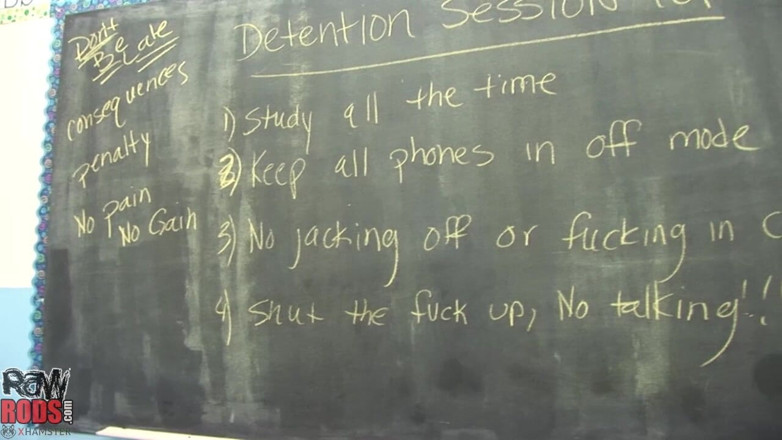 Don't
Be Late
consequences
penalty
No pain
No Gain
Detention Session
1) Study all the time
2) Keep all phones in off mode
3) No jacking off or fucking in C
4) Shut the fuck up, No talking!!
RAW
RODS.com
XHAMSTER